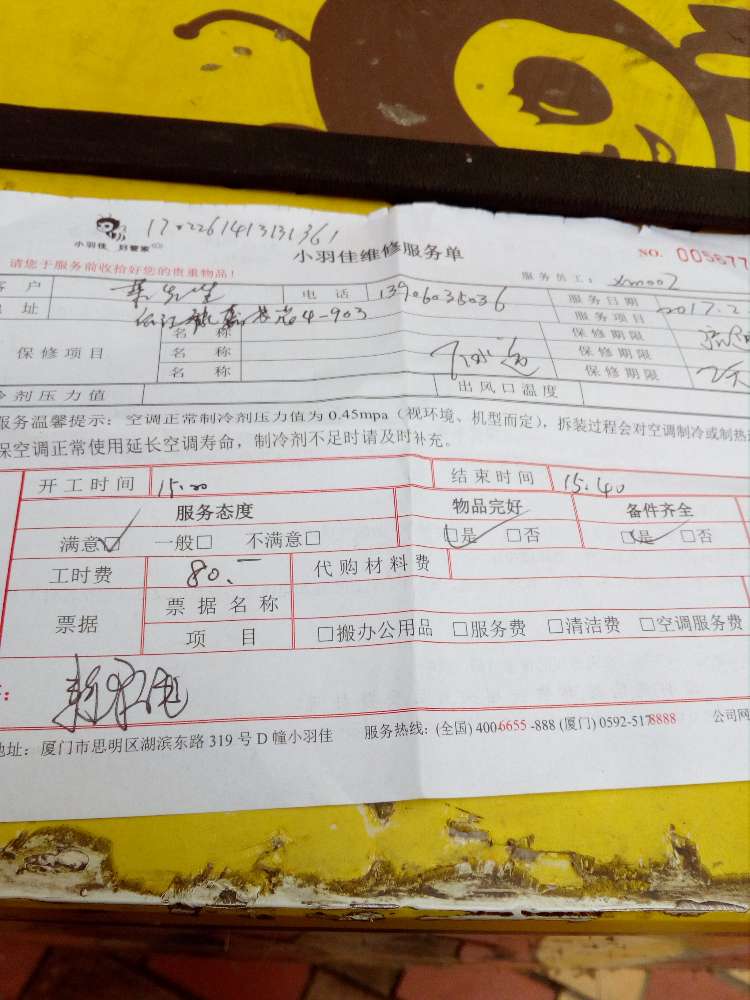 170226141313​1361
小羽佳 好管家
小羽佳维修服务单
NO. 005677
请您于服务前收拾好您的贵重物品!
服务员工: xm007
户 先生 电话 13906035036 服务日期 2017.2
址 4-903 服务项目
保修项目 名称 保修期限
名称 保修期限
名称 保修期限
冷剂压力值 出风口温度
服务温馨提示: 空调正常制冷剂压力值为 0.45mpa (视环境、机型而定), 拆装过程会对空调制冷或制热
保空调正常使用延长空调寿命, 制冷剂不足时请及时补充。
开工时间 15.00 结束时间 15.40
服务态度 物品完好 备件齐全
满意☑ 一般□ 不满意□ ☑是 □否 ☑是 □否
工时费 80.- 代购材料费
票据 票据名称
项目 □搬办公用品 □服务费 □清洁费 □空调服务费
地址: 厦门市思明区湖滨东路 319 号 D 幢小羽佳 服务热线: (全国) 400-6655-888 (厦门) 0592-5178888 公司网